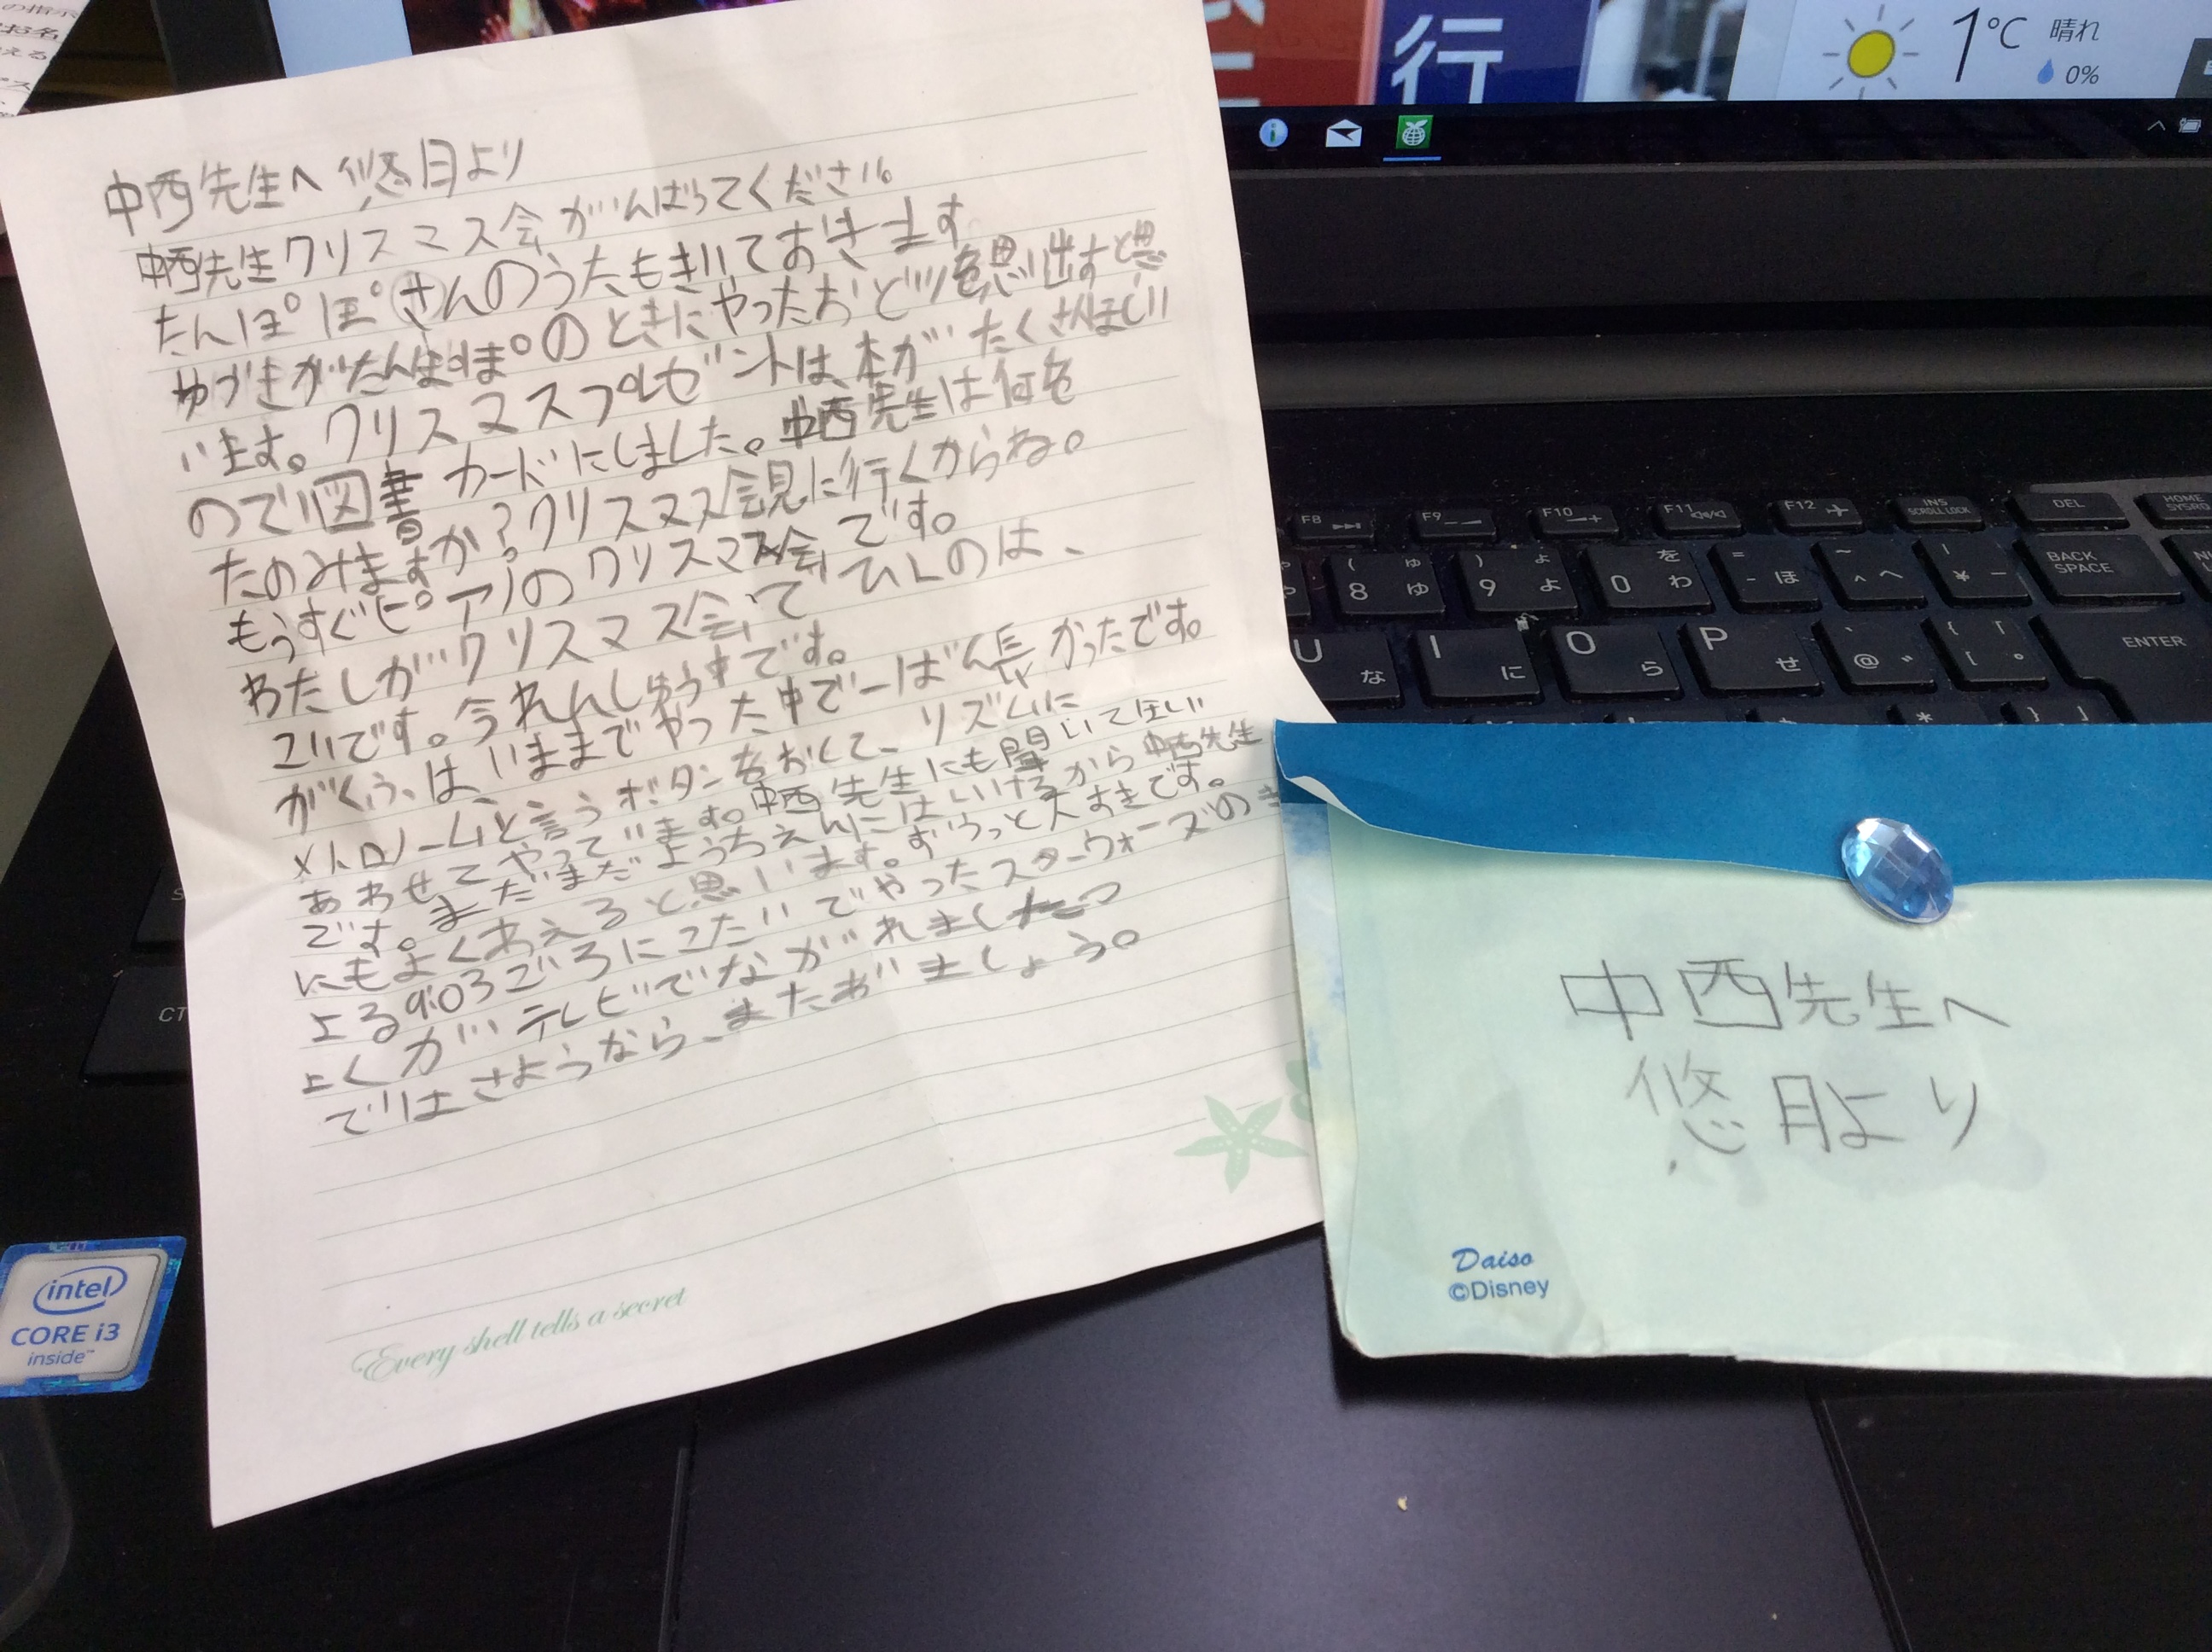 中西先生へ 悠月より
中西先生クリスマス会がんばってください
たんぽぽさんのうたもきいておきます
ゆづきがたんぽぽのときにやったおどりを思い出すと思
います。クリスマスプレゼントは、本がたくさんほしい
ので図書カードにしました。中西先生は何を
たのみますか?クリスマス会見に行くからね。
もうすぐピアノのクリスマス会です。
わたしがクリスマス会で ひくのは、
です。今れんしゅう中です。
がくふは、いままでやった中で一ばん長かったです。
メトロノームと言うボタンをおして、リズムに
あわせてやっています。中西先生にも聞いてほしい
です。まだまだようちえんにはいけるから中西先生
にもよくあえると思います。ずうっと大すきです。
よる9:03ごろにこたいでやったスターウォーズのき
ょくがテレビでながれました
ではさようなら、またあいましょう。
Every shell tells a secret
中西先生へ
悠月より
Daiso
©Disney
intel
CORE i3
inside™
行
1°C 晴れ
0%
F8
F9
F10
F11
F12
INS
SCROLL LOCK
DEL
HOME
8 ゆ
9 よ
0 わ を
- ほ
BACK
SPACE
U な
I に
O ら
P せ
@
ENTER